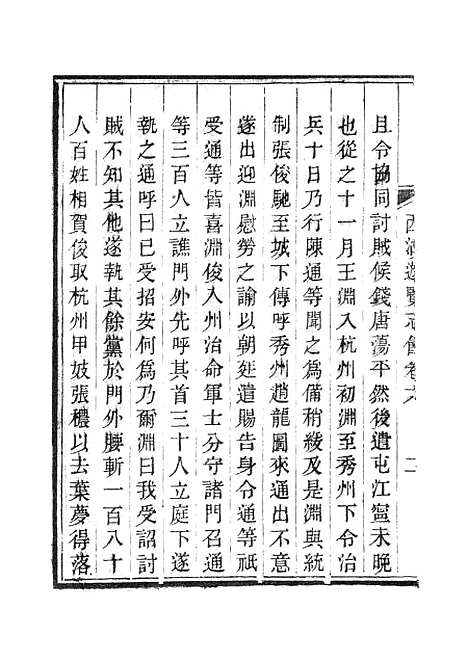 西湖遊覽志餘卷六
二
且令協同討賊候錢唐蕩平然後遣屯江寧未晚
也從之十一月王淵入杭州初淵至秀州下令治
兵十日乃行陳通等聞之為備稍緩及是淵與統
制張俊馳至城下傳呼秀州趙龍圖來通出不意
遂出迎淵慰勞之諭以朝廷遣賜告身令通等祇
受通等皆喜淵俊入州治命軍士分守諸門召通
等三百人立譙門外先呼其首三十人立庭下遂
執之通呼曰已受招安何為乃爾淵曰我受詔討
賊不知其他遂執其餘黨於門外腰斬一百八十
人百姓相賀俊取杭州甲妓張穠以去葉夢得落